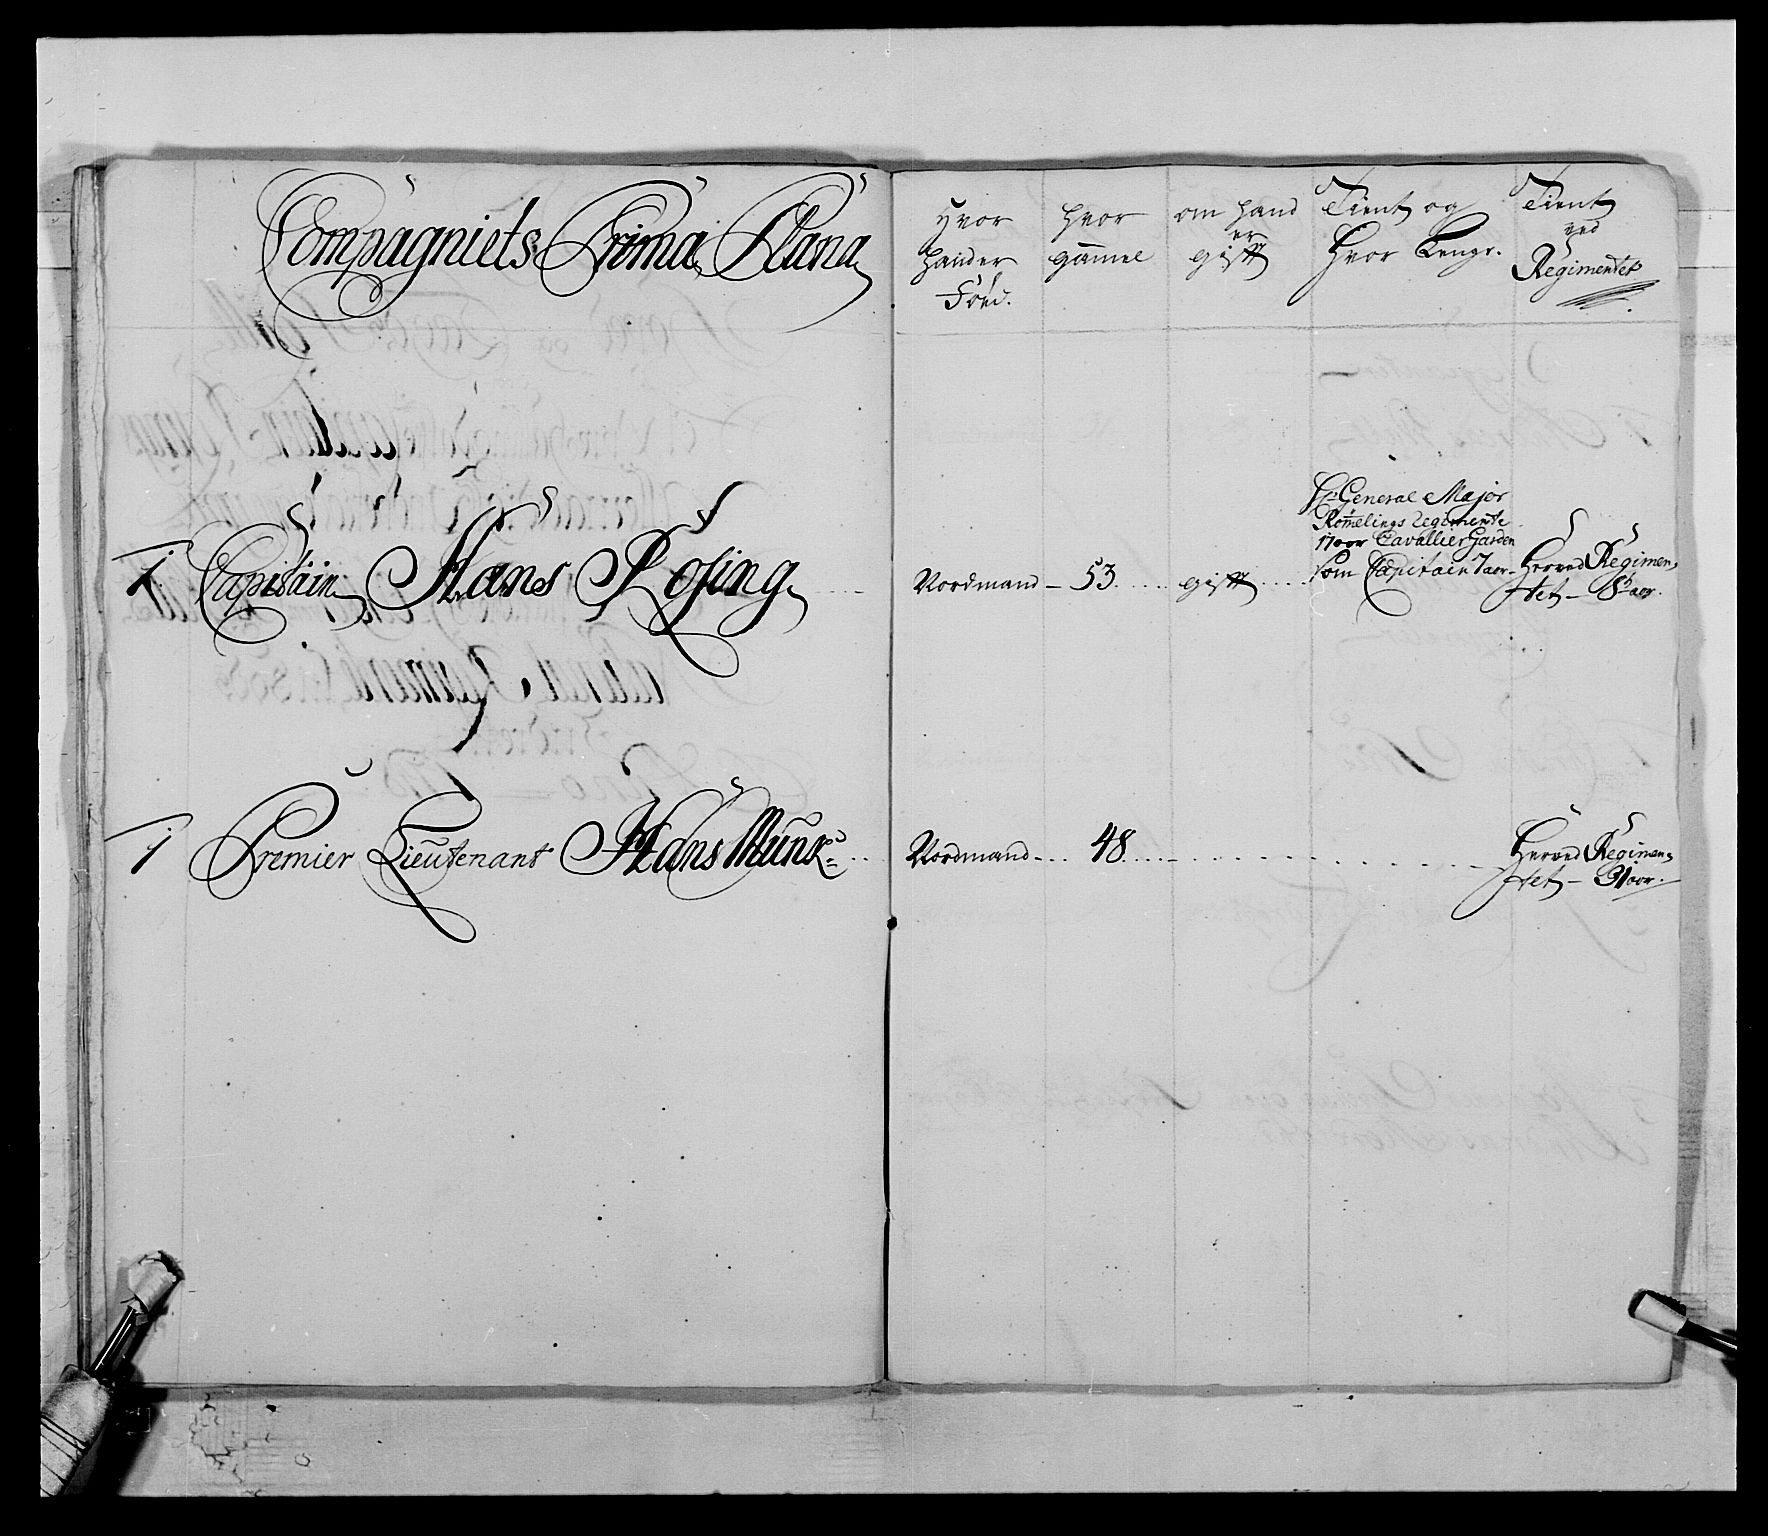 Compagniets Prima Plana
Hvor
hand er
Fód.
hvor
gam̄el
om hand
er
gift
Tient og
Hvor Lenge.
Tient
ved
Regimentet
1 Capitain Hans Rosing
Nordmand – 53 gift
Hr: General Major
Rōmelings Regimente
17 aar Cavallier Garden
som Capitain 7 aar
Her ved Regimen,,
tet – 8 aar.
1 Premier Lieutenant Hans Munk
Nordmand 48
Her ved Regimen,,
tet – 31 aar.